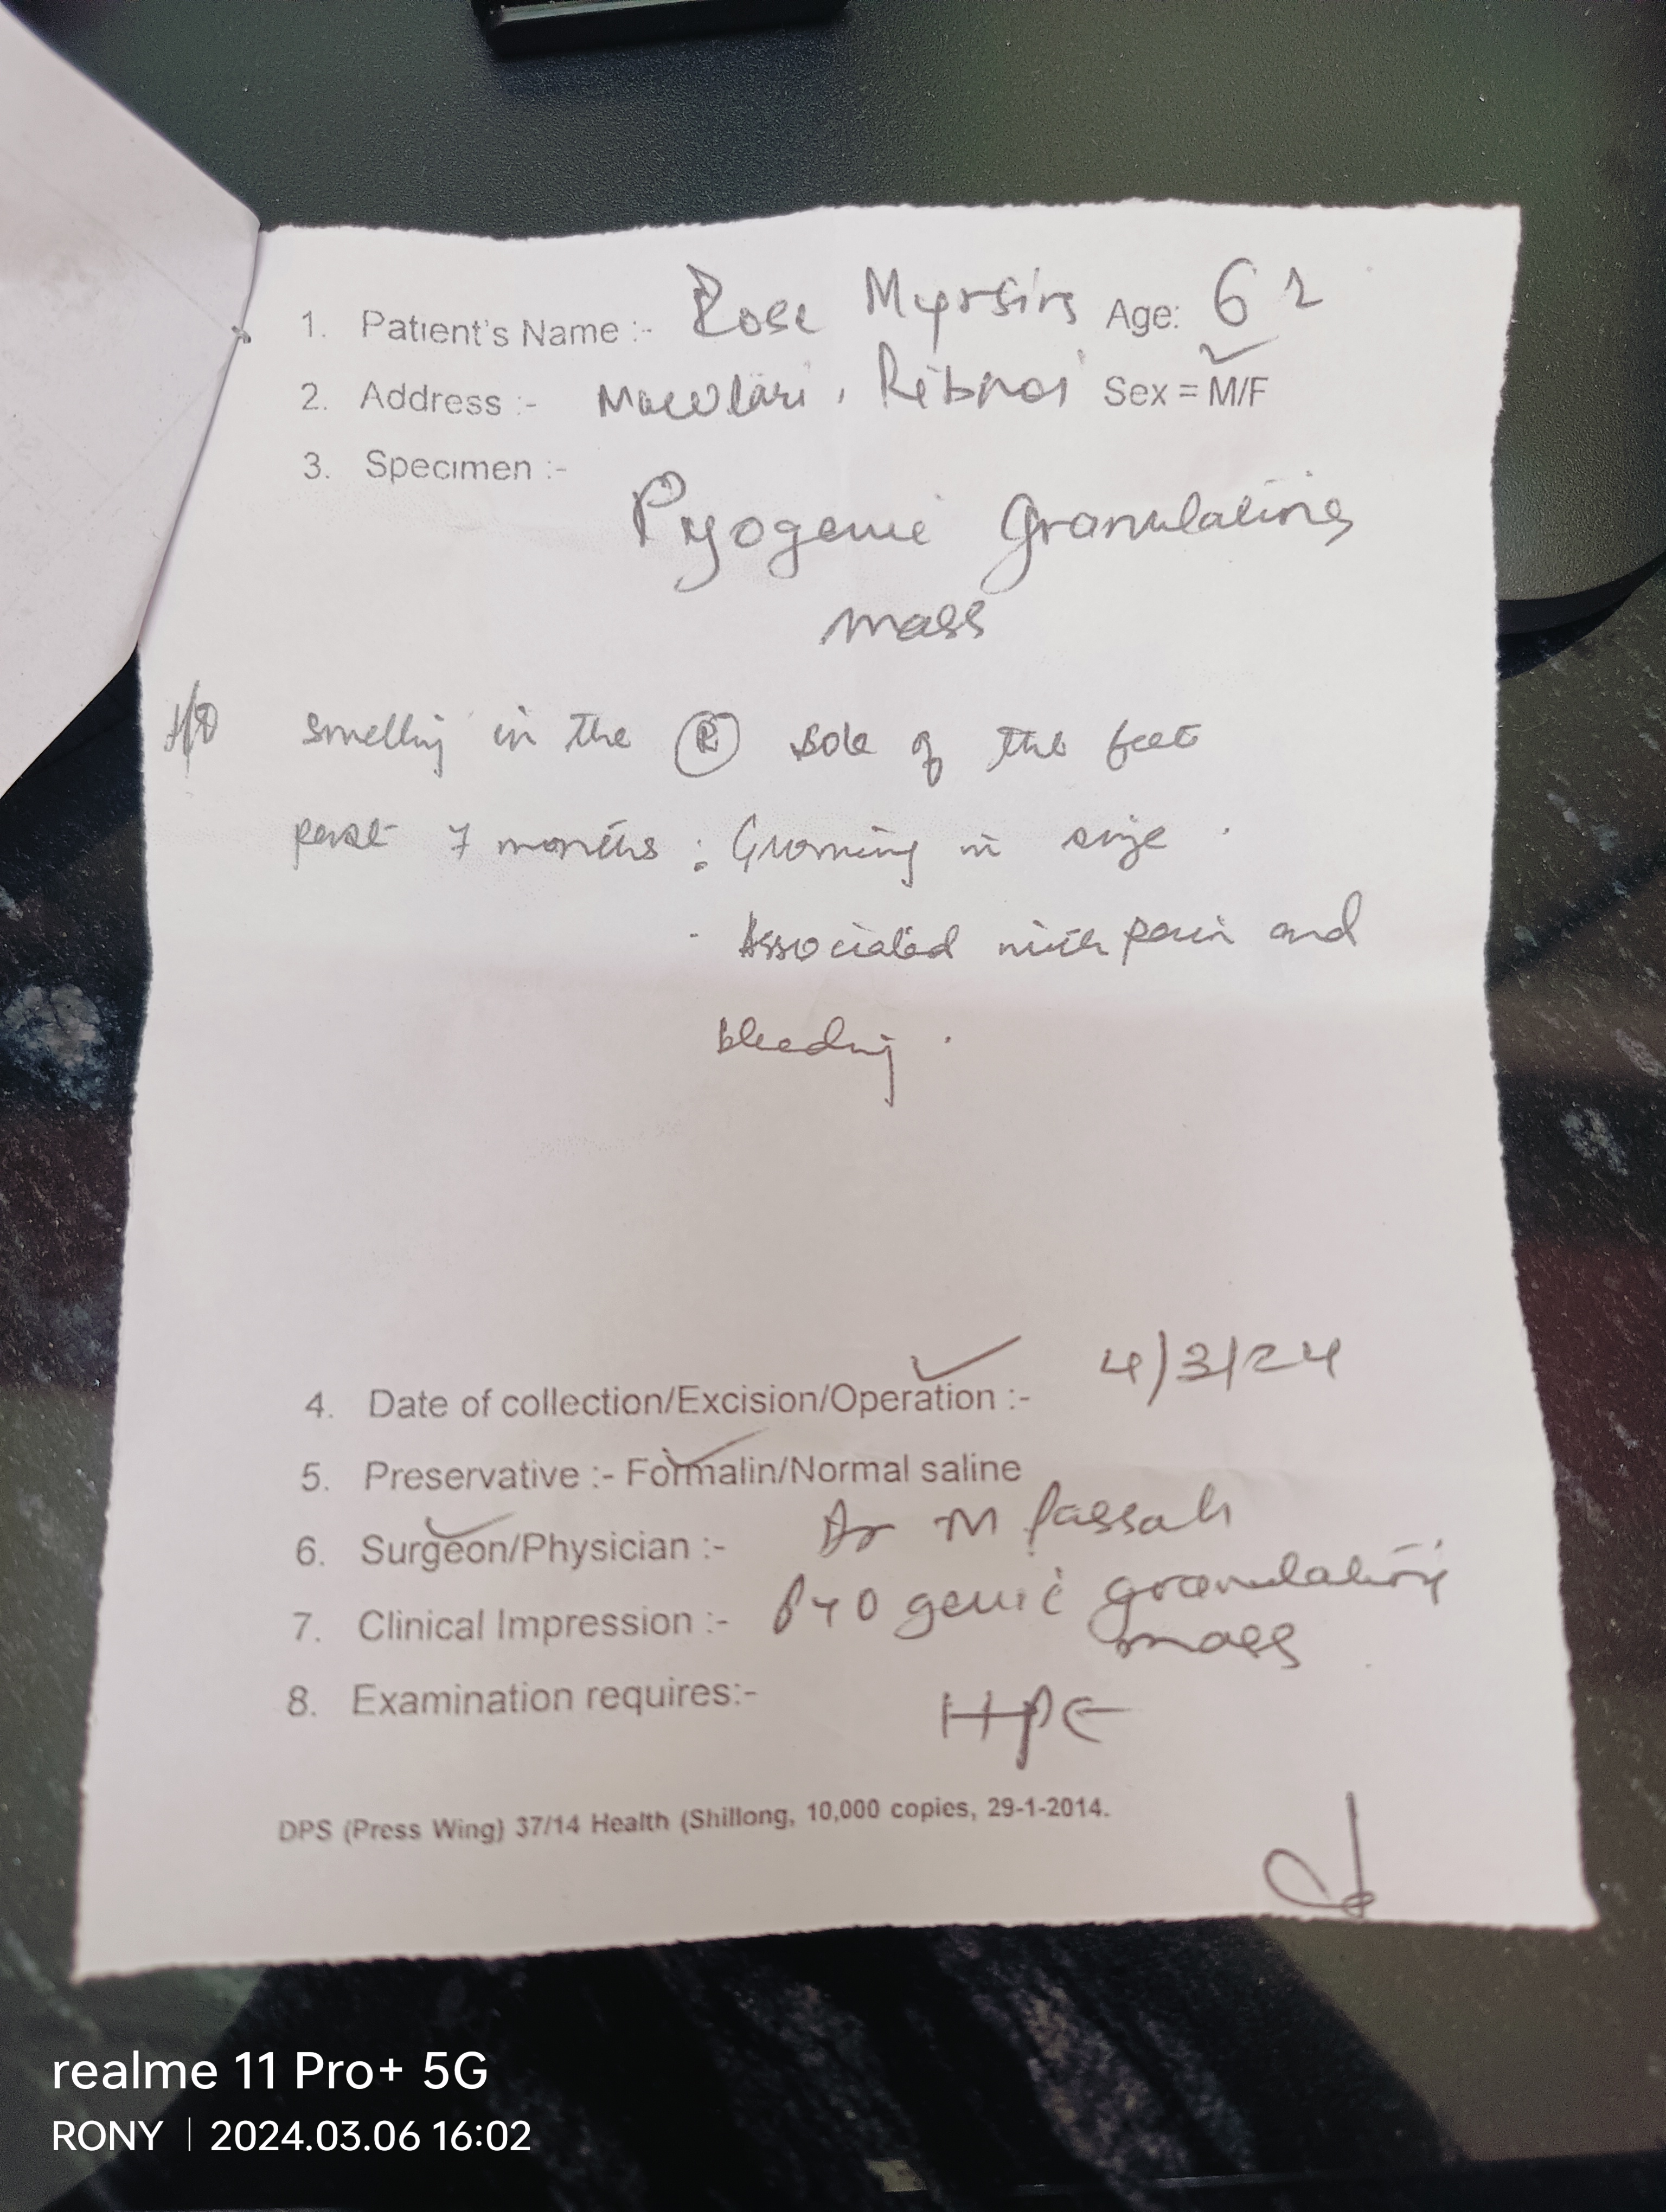 1. Patient's Name :- Rose Myrsing Age: 62
2. Address :- Mawlari, Sex = M/F
3. Specimen :-
Pyogenic Granulating
mass
H/O Swelling in the (R) sole of the feet
past 7 months : Growing in size .
- Associated with pain and
bleeding .
4. Date of collection/Excision/Operation :- 4/3/24
5. Preservative :- Formalin/Normal saline
6. Surgeon/Physician :- Dr M Passah
7. Clinical Impression :- Pyogenic granulating
mass
8. Examination requires:- HPE
DPS (Press Wing) 37/14 Health (Shillong, 10,000 copies, 29-1-2014.
realme 11 Pro+ 5G
RONY | 2024.03.06 16:02